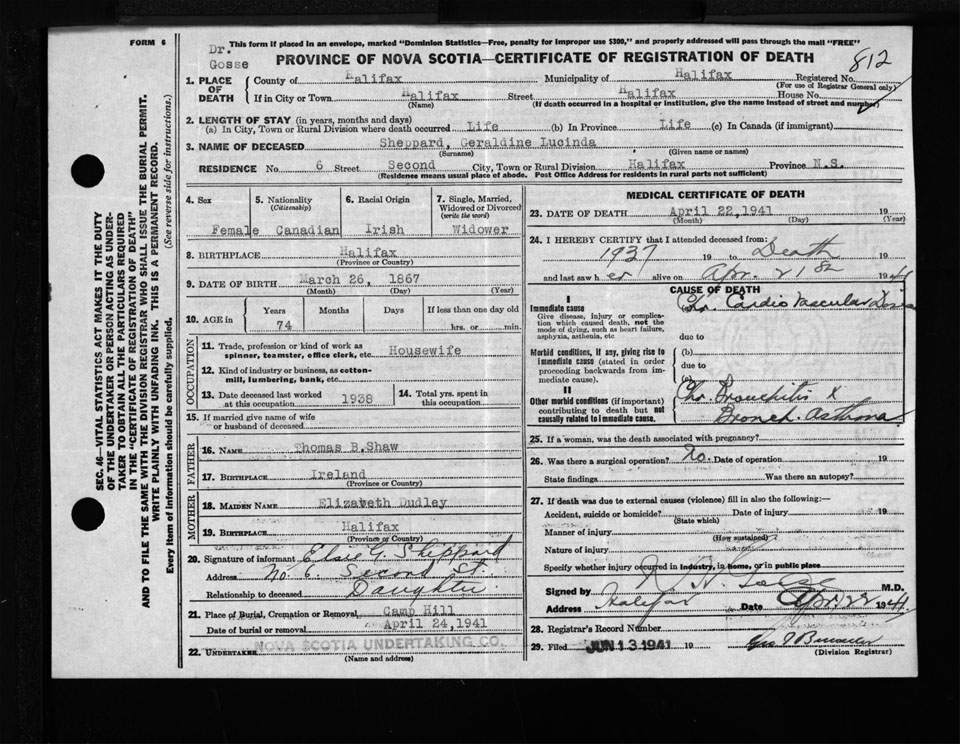 FORM 6
This form if placed in an envelope, marked "Dominion Statistics—Free, penalty for improper use $300," and properly addressed will pass through the mail "FREE"
Dr.
Gosse
PROVINCE OF NOVA SCOTIA—CERTIFICATE OF REGISTRATION OF DEATH
812
1. PLACE OF DEATH
County of Halifax Municipality of Halifax Registered No.
(For use of Registrar General only)
If in City or Town Halifax Street Halifax House No.
(Name) (If death occurred in a hospital or institution, give the name instead of street and number)
2. LENGTH OF STAY (in years, months and days)
(a) In City, Town or Rural Division where death occurred Life (b) In Province Life (c) In Canada (if immigrant)
3. NAME OF DECEASED Sheppard, Geraldine Lucinda
(Surname) (Given name or names)
RESIDENCE No 6 Street Second City, Town or Rural Division Halifax Province N.S.
(Residence means usual place of abode. Post Office Address for residents in rural parts not sufficient)
4. Sex
Female
5. Nationality
(Citizenship)
Canadian
6. Racial Origin
Irish
7. Single, Married, Widowed or Divorced
(write the word)
Widower
8. BIRTHPLACE Halifax
(Province or Country)
9. DATE OF BIRTH March 26, 1867
(Month) (Day) (Year)
10. AGE in
Years Months Days If less than one day old
74 hrs. or min.
OCCUPATION
11. Trade, profession or kind of work as
spinner, teamster, office clerk, etc. Housewife
12. Kind of industry or business, as cotton-
mill, lumbering, bank, etc.
13. Date deceased last worked
at this occupation 1938
14. Total yrs. spent in
this occupation
15. If married give name of wife
or husband of deceased
FATHER
16. NAME Thomas B. Shaw
17. BIRTHPLACE Ireland
(Province or Country)
MOTHER
18. MAIDEN NAME Elizabeth Dudley
19. BIRTHPLACE Halifax
(Province or Country)
20. Signature of informant Elsie G. Sheppard
Address No 6. Second St.
Relationship to deceased Daughter
21. Place of Burial, Cremation or Removal Camp Hill
Date of burial or removal April 24, 1941
22. UNDERTAKER NOVA SCOTIA UNDERTAKING CO.
(Name and address)
MEDICAL CERTIFICATE OF DEATH
23. DATE OF DEATH April 22, 1941 19
(Month) (Day) (Year)
24. I HEREBY CERTIFY that I attended deceased from:
1937 19 to Death
and last saw h er alive on Apr. 21st 1941
CAUSE OF DEATH
I
Immediate cause
Give disease, injury or complica-
tion which caused death, not the
mode of dying, such as heart failure,
asphyxia, asthenia, etc
Chr. Cardio Vascular
due to
Morbid conditions, if any, giving rise to
immediate cause (stated in order
proceeding backwards from im-
mediate cause).
(b)
due to
(c)
II
Other morbid conditions (if important)
contributing to death but not
causally related to immediate cause.
Chr. Bronchitis
Bronch. asthma
25. If a woman, was the death associated with pregnancy?
26. Was there a surgical operation? No. Date of operation 19
State findings Was there an autopsy?
27. If death was due to external causes (violence) fill in also the following:—
Accident, suicide or homicide? Date of injury 19
(State which)
Manner of injury
(How sustained)
Nature of injury
Specify whether injury occurred in industry, in home, or in public place
Signed by M.D.
Address Halifax Date April 22 1941
28. Registrar's Record Number
29. Filed JUN 13 1941 19
(Division Registrar)
SEC. 46—VITAL STATISTICS ACT MAKES IT THE DUTY
OF THE UNDERTAKER OR PERSON ACTING AS UNDER-
TAKER TO OBTAIN ALL THE PARTICULARS REQUIRED
IN THE "CERTIFICATE OF REGISTRATION OF DEATH"
AND TO FILE THE SAME WITH THE DIVISION REGISTRAR WHO SHALL ISSUE THE BURIAL PERMIT.
WRITE PLAINLY WITH UNFADING INK. THIS IS A PERMANENT RECORD.
Every item of information should be carefully supplied. (See reverse side for instructions.)